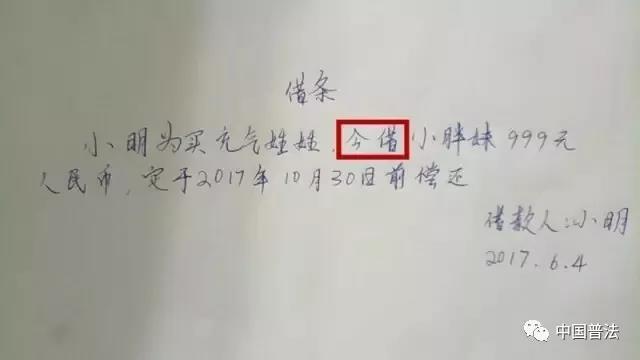 借条
小明为买充气娃娃，今借小胖妹999元
人民币，定于2017年10月30日前偿还
借款人：小明
2017.6.4
中国普法